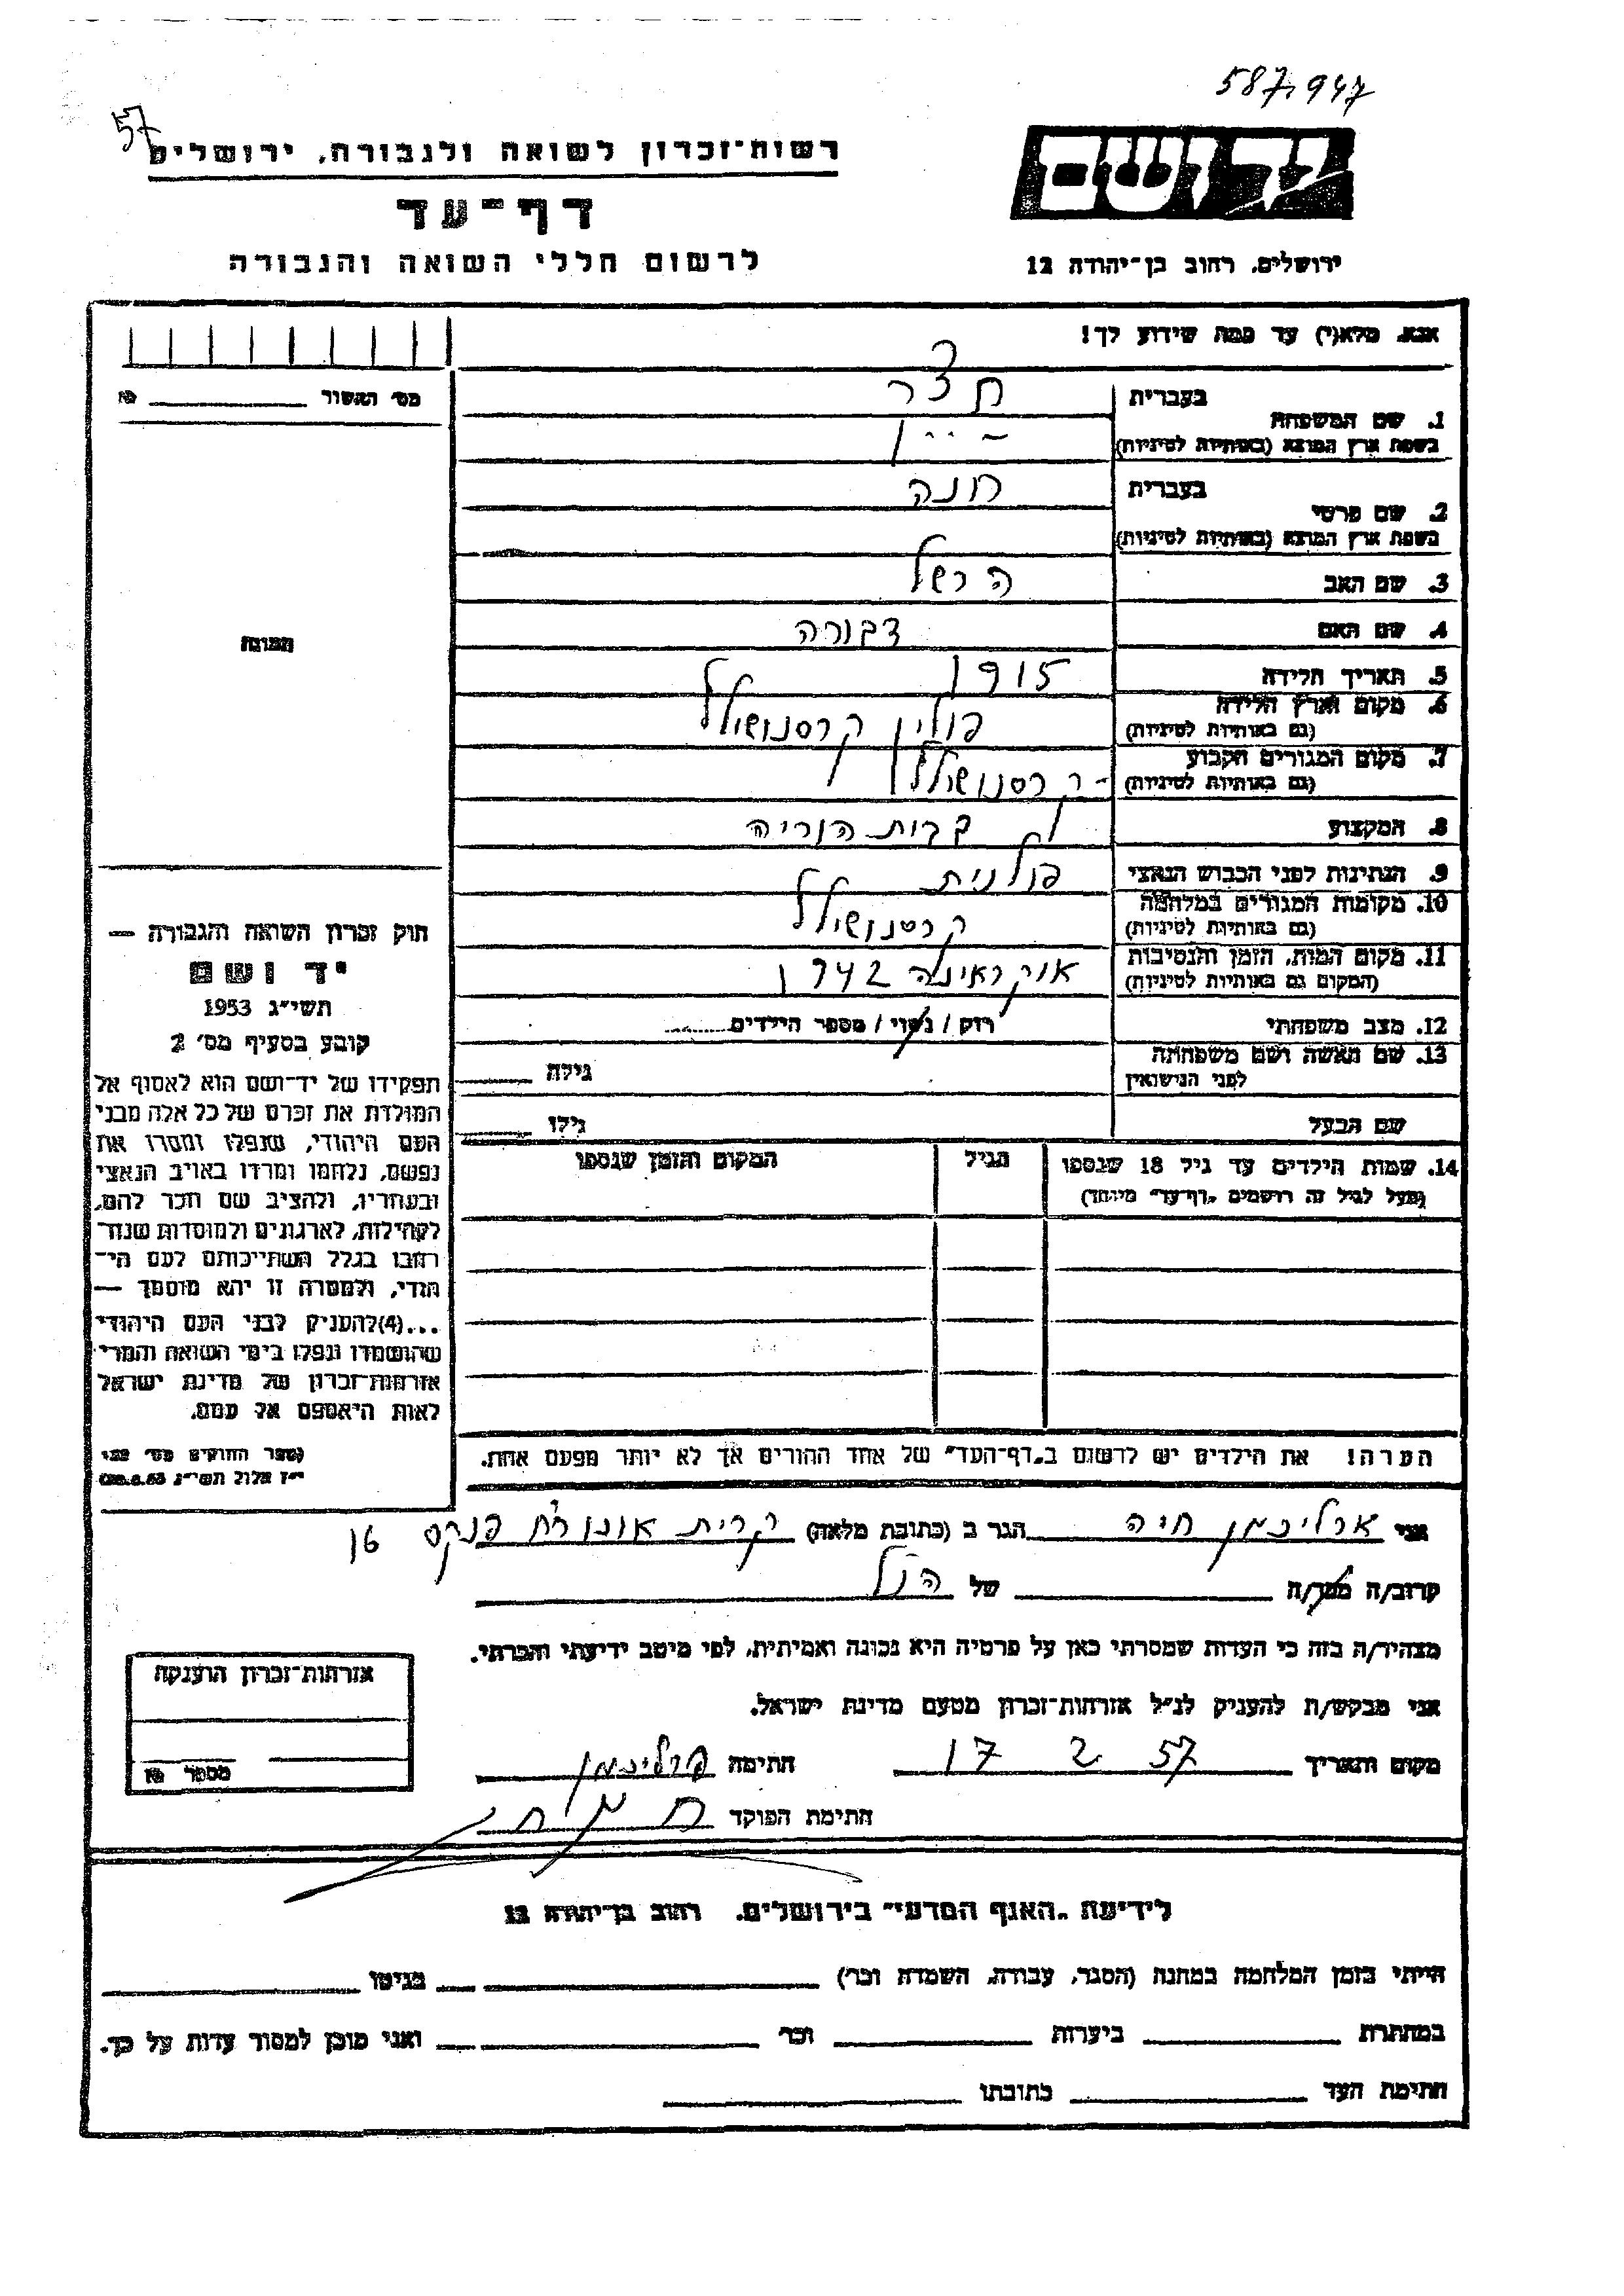 587,947
57
רשות־זכרון לשואה ולגבורה, ירושלים
יד ושם
דף־עד
לרשום חללי השואה והגבורה
ירושלים, רחוב בן־יהודה 12
אנא, מלא(י) עד כמה שידוע לך!
מס׳ האשור
בעברית
1. שם המשפחה
בשפת ארץ המוצא (באותיות לטיניות)
בעברית חנה
2. שם פרטי
בשפת ארץ המוצא (באותיות לטיניות)
3. שם האב הרשל
4. שם האם דבורה
5. תאריך הלידה 1915
6. מקום וארץ הלידה פולין קרסנושילל
(גם באותיות לטיניות)
7. מקום המגורים הקבוע קרסנושילל
(גם באותיות לטיניות)
8. המקצוע
9. הנתינות לפני הכבוש הנאצי פולנית
10. מקומות המגורים במלחמה קרסנושילל
(גם באותיות לטיניות)
11. מקום המות, הזמן והנסיבות אוקראינה 1942
(המקום גם באותיות לטיניות)
12. מצב משפחתי רוק / נשוי / מספר הילדים
13. שם האשה ושם משפחתה
לפני הנישואין גילה
שם הבעל גילו
14. שמות הילדים עד גיל 18 שנספו הגיל המקום והזמן שנספו
(מעל לגיל זה רושמים „דף־עד״ מיוחד)
הערה! את הילדים יש לרשום ב„דף־העד״ של אחד ההורים אך לא יותר מפעם אחת.
תמונה
חוק זכרון השואה והגבורה —
יד ושם
תשי״ג 1953
קובע בסעיף מס׳ 2
תפקידו של יד־ושם הוא לאסוף אל
המולדת את זכרם של כל אלה מבני
העם היהודי, שנפלו ומסרו את
נפשם, נלחמו ומרדו באויב הנאצי
ובעוזריו, ולהציב שם וזכר להם,
לקהילות, לארגונים ולמוסדות שנח־
רבו בגלל השתייכותם לעם הי־
הודי, ולמטרה זו יהא מוסמך —
...(4)להעניק לבני העם היהודי
שהושמדו ונפלו בימי השואה והמרי
אזרחות־זכרון של מדינת ישראל
לאות היאספם אל עמם.
(ספר החוקים מס׳ 132
י״ז אלול תשי״ג
אני ארליכמן חיה הגר ב (כתובת מלאה) קרית אונו
קרוב/ה מכר/ה של הנ״ל
מצהיר/ה בזה כי העדות שמסרתי כאן על פרטיה היא נכונה ואמיתית, לפי מיטב ידיעתי והכרתי.
אני מבקש/ת להעניק לנ״ל אזרחות־זכרון מטעם מדינת ישראל.
מקום ותאריך 17 2 57 חתימה ארליכמן
חתימת הפוקד
אזרחות־זכרון הוענקה
מספר
לידיעת „האגף המדעי״ בירושלים, רחוב בן־יהודה 12
הייתי בזמן המלחמה במחנה (הסגר, עבודה, השמדה וכו׳) בגיטו
במחתרת ביערות וכו׳ ואני מוכן למסור עדות על כך.
חתימת העד כתובתו